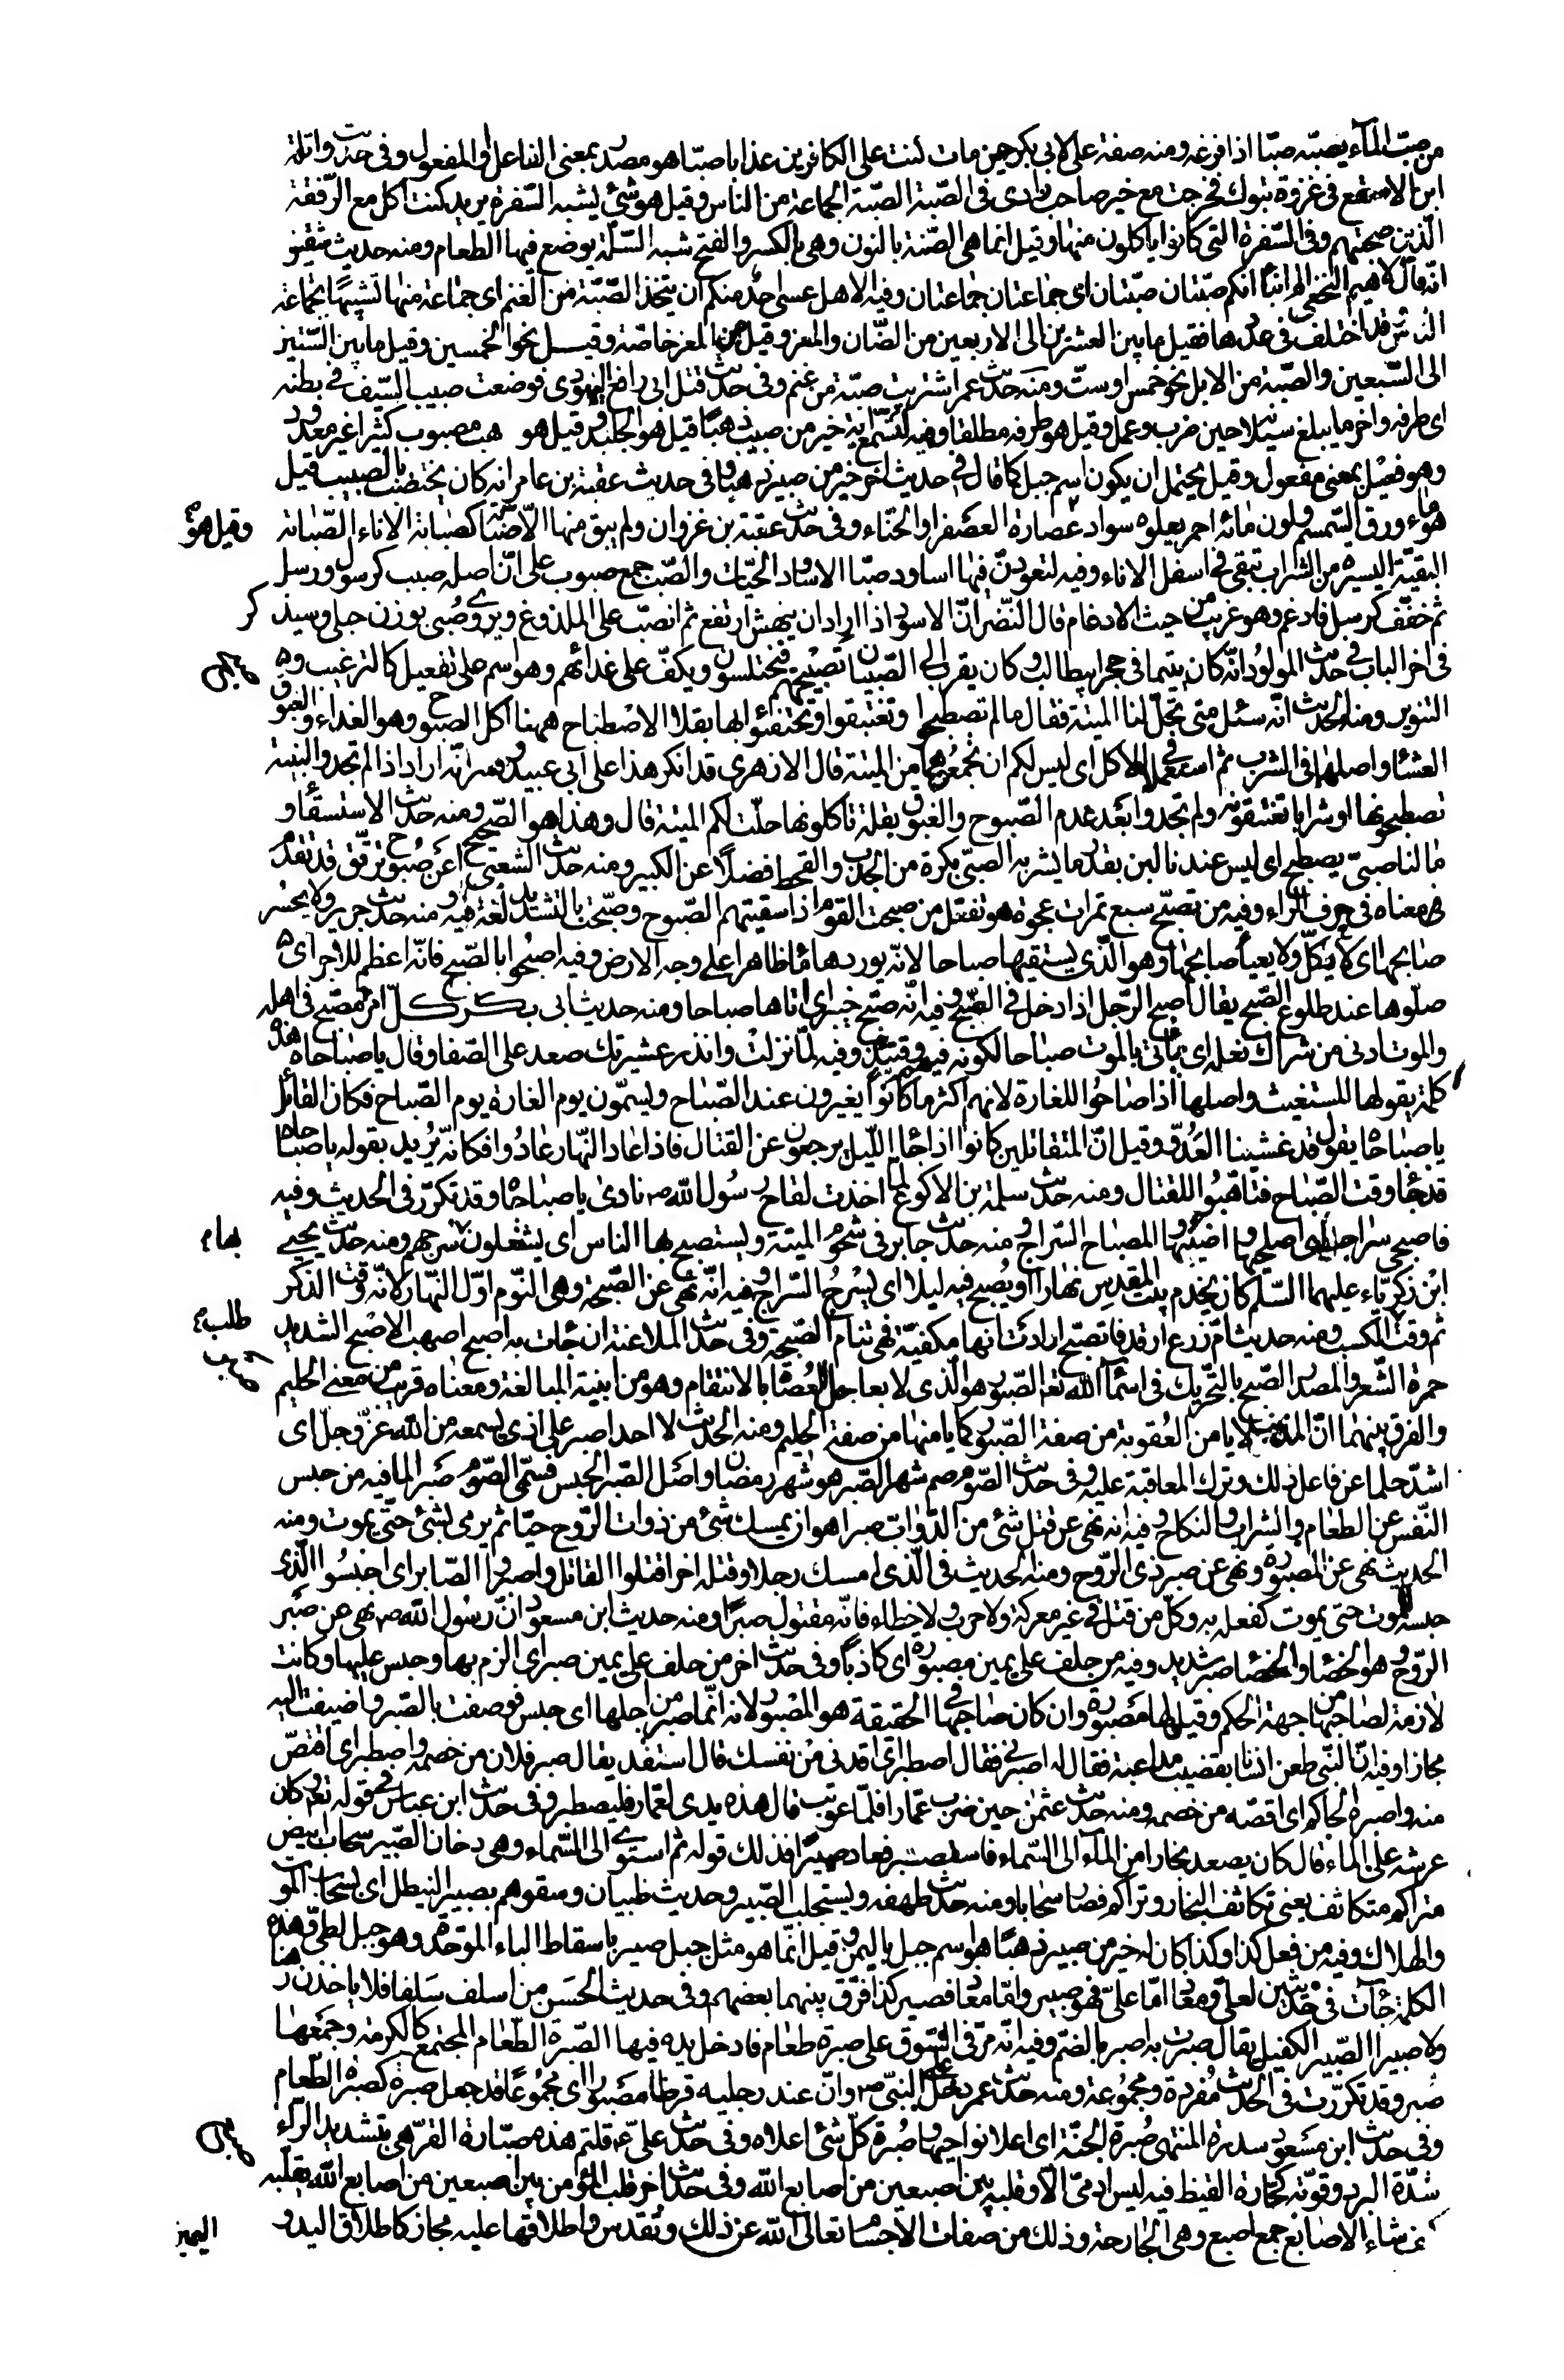 من صبّ الماء يصبّه صبّا اذا افرغه ومنه صفة علىّ لابى بكر حين مات كنت على الكافرين عذابا صبّا هو مصدر بمعنى الفاعل او المفعول وفى حديث واثلة
ابن الاسقع فى غزوة تبوك فخرجت مع خير صاحب زادى فى الصّبة الصّبة الجماعة من الناس وقيل هو شئ يشبه السّفرة يريد كنت آكل مع الرّفقة
الّذين صحبتهم وفى السّفرة التى كانوا ياكلون منها وقيل انما هى الصّنة بالنون وهى بالكسر والفتح شبه السّلّة يوضع فيها الطعام ومنه حديث شقيق
انّه قال لابراهيم النخعى الم انبّأ انكم صبّتان صبّتان اى جماعتان جماعتان وفيه الاهل عسى احد منكم ان يتخذ الصّبّة من الغنم اى جماعة منها تشبيها بجماعة
الناس قد اختلف فى عددها فقيل ما بين العشرين الى الاربعين من الضّان والمعز وقيل من المعز خاصّة وقيل نحو الخمسين وقيل ما بين السّتين
الى السّبعين والصّبة من الابل نحو خمس او ستّ ومنه حديث عمر اشتريت صبّة من غنم وفى حديث قتل ابى رافع اليهودى فوضعت صبيب السّيف فى بطنه
اى طرفه وآخر ما يبلغ سيلانه حين ضرب وعمل وقيل هو طرفه مطلقا وفيه لتسمع آية خير من صبيب ذهبا قيل هو الجليد وقيل هو ذهب مصبوب كثيرا غير معدود
وهو فعيل بمعنى مفعول وقيل يحتمل ان يكون اسم جبل كما قال فى حديث آخر خير من صبير ذهبا وفى حديث عقبة بن عامر انه كان يختضب بالصبيب قيل
هو ماء ورق السّمسم ولون مائه احمر يعلوه سواد عصارة العصفر او الحنّاء وفى حديث عتبة بن غزوان ولم يبق منها الا صبابة كصبابة الاناء الصّبابة
وقيل هو
البقيّة اليسيرة من الشراب تبقى فى اسفل الاناء وفيه لتعودنّ فيها اساود صبّا الاساود الحيّات والصّب جمع صبوب على انّ اصله صبب كرسول ورسل
ثم خفّف كرسل فادغم وهو غريب من حيث الادغام قال النّضر انّ الاسود اذا اراد ان ينهش ارتفع ثم انصبّ على الملدوغ ويروى صُبى بوزن حبلى وسيذكر
فى آخر الباب فى حديث المولود انّه كان يتيما فى حجر ابيطالب وكان يقرب الى الصّبيان تصبيحهم فيختلسون ويكفّ على غدائهم وهو اسم على تفعيل كالترغيب و
التنوير ومنه الحديث انّه سئل متى تحلّ لنا الميتة فقال ما لم تصطبحوا وتغتبقوا وتحتفئوا بها بقلا الاصطباح ههنا اكل الصبوح وهو الغداء والغبوق
العشاء واصلها فى الشرب ثم استعملا فى الاكل اى ليس لكم ان تجمعوهما من الميتة قال الازهرى قد انكر هذا على ابى عبيد وفسر انّه اراد اذا لم تجدوا لبينة
تصطبحونها او شرابا تغتبقونه ولم تجدوا بعد عدم الصّبوح والغبوق بقلة تاكلونها حلّت لكم الميتة قال وهذا هو الصّحيح ومنه حديث الاستسقاء و
ما لنا صبىّ يصطبح اى ليس عندنا لبن بقدر ما يشربه الصبىّ بكرة من الجدب والقحط فضلا عن الكبير ومنه حديث الشعبى اعن صبوح ترقّق قد تقدّم
معناه فى حرف الراء وفيه من تصبّح سبع تمرات عجوة هو تفعّل من صبحت القوم اذا سقيتهم الصّبوح وصبّحت بالتشديد لغة فيه ومنه حديث جرير ولا يحسر
صابحها اى لا يكلّ ولا يعيا صابحها وهو الّذى يسقيها صباحا لانّه يوردها ماء ظاهرا على وجه الارض وفيه اصبحوا بالصّبح فانّه اعظم للاجر اى
صلّوها عند طلوع الصّبح يقال اصبح الرّجل اذا دخل فى الصّبح وفيه انّه صبّح خيبر اى اتاها صباحا ومنه حديث ابى بكر كلّ امرئ مصبّح فى اهله
والموت ادنى من شراك نعله اى يأتى بالموت صباحا لكونه فيهم وقتئذ وفيه لمّا نزلت وانذر عشيرتك صعد على الصّفا وقال يا صباحاه هذه
كلمة يقولها المستغيث واصلها اذا صاحوا للغارة لانهم اكثر ما كانوا يغيرون عند الصّباح ويسمّون يوم الغارة يوم الصّباح فكان القائل
يا صباحاه يقول قد غشينا العدوّ وقيل انّ المتقاتلين كانوا اذا جاء الليل يرجعون عن القتال فاذا عاد النّهار عادوا فكانّه يريد بقوله يا صباحاه
قد جاء وقت الصّباح فتاهّبوا للقتال ومنه حديث سلمة بن الاكوع لما اخذت لقاح رسول الله ص نادى يا صباحاه وقد تكرّر فى الحديث وفيه
فاصبحى سراجك اى اصلحيها واضيئيها والمصباح السّراج ومنه حديث جابر فى شحوم الميتة ويستصبح بها الناس اى يشعلون سرجهم ومنه حديث يحيى
بها م
ابن زكريّاء عليهما السّلم كان يخدم بيت المقدس نهارا ويصبح فيه ليلا اى يسرج السّراج وفيه انّه نهى عن الصّبحة وهى النّوم اوّل النّهار لانّه وقت الذكر
ثم وقت الكسب ومنه حديث امّ زرع ارقد فاتصبّح ارادت انها مكفيّة فهى تنام الصّبحة وفى حديث الملاعنة ان جاءت به اصبح اصهب الاصبح الشديد
طلب م
حمرة الشّعر والمصدر الصّبح بالتّحريك فى اسماء الله تعالى الصّبور هو الّذى لا يعاجل العصاة بالانتقام وهو من ابنية المبالغة ومعناه قريب من معنى الحليم
والفرق بينهما انّ المذنب لا يامن العقوبة من صفة الصّبور كما يامنها من صفة الحليم ومنه الحديث لا احد اصبر على اذى يسمعه من الله عزّ وجلّ اى
اشدّ حلما عن فاعل ذلك وترك المعاقبة عليه وفى حديث الصّوم صم شهر الصّبر هو شهر رمضان واصل الصّبر الحبس فسمّى الصّوم صبرا لما فيه من حبس
النّفس عن الطعام والشراب والنكاح وفيه انه نهى عن قتل شئ من الدّوابّ صبرا هو ان يمسك شئ من ذوات الرّوح حيّا ثم يرمى بشئ حتّى يموت ومنه
الحديث نهى عن المصبورة ونهى عن صبر ذى الرّوح ومنه الحديث فى الّذى امسك رجلا وقتله آخر اقتلوا القاتل واصبروا الصّابر اى احبسوا الّذى
حبسه للموت حتى يموت كفعله به وكلّ من قتل فى غير معركة ولا حرب ولا خطاء فانّه مقتول صبرا ومنه حديث ابن مسعود انّ رسول الله ص نهى عن صبر
الرّوح وهو الخصاء والخصاء صبر شديد وفيه من حلف على يمين مصبورة اى كاذبا وفى حديث آخر من حلف على يمين صبر اى الزم بها وحبس عليها وكانت
لازمة لصاحبها من جهة الحكم وقيل لها مصبورة وان كان صاحبها فى الحقيقة هو المصبور لانه انّما صبر من اجلها اى حبس فوصفت بالصّبر واضيفت اليه
مجازا وفيه انّ النّبى طعن انسانا بقضيب مداعبة فقال له اصبرنى فقال اصطبر اى اقدنى من نفسك قال استقد يقال صبر فلان من خصمه واصطبر اى اقتصّ
منه واصبره الحاكم اى اقصّه من خصمه ومنه حديث عثمن حين ضرب عمّارا فلمّا عوتب قال هذه يدى لعمّار فليصطبر وفى حديث ابن عباس فى قوله تعالى وكان
عرشه على الماء قال كان يصعد بخار من الماء الى السّماء فاستصبر فعاد صبيرا فذلك قوله ثم استوى الى السّماء وهى دخان الصّبير سحاب ابيض
متراكم متكاثف يعنى تكاثف البخار وتراكم فصار سحابا ومنه حديث طهفة ويستحلب الصّبير وحديث ظبيان وسقوهم بصبير النيطل اى بسحاب الموت
والهلاك وفيه من فعل كذا وكذا كان له خير من صبير ذهبا هو اسم جبل باليمن وقيل انّما هو مثل جبل صير باسقاط الباء الموحّدة وهو جبل لطىّ وهذه
الكلمة جاءت فى حديثين لعلىّ ومعاذ امّا علىّ فهو صبير وامّا معاذ فصير كذا فرّق بينهما بعضهم وفى حديث الحسن من اسلف سلفا فلا ياخذنّ رهنا
ولا صبيرا الصّبير الكفيل يقال صبرت به اصبر بالضمّ وفيه انّه مرّ فى السّوق على صبرة طعام فادخل يده فيها الصّبرة الطّعام المجتمع كالكومة وجمعها
صبر وقد تكرّرت فى الحديث مفردة ومجموعة ومنه حديث عمر دخل على النبّى ص وانّ عند رجليه قرظا مصبورا اى مجموعا قد جعل صبرة كصبرة الطّعام
وفى حديث ابن مسعود سدرة المنتهى صبرة الجنّة اى اعلا نواحيها وصبرة كلّ شئ اعلاه وفى حديث علىّ ع قلتم هذه صبّارة القرّ هى بتشديد الراء
شدّة البرد وقوّته كحمارّة القيظ فيه ليس آدمىّ الا وقلبه بين اصبعين من اصابع الله وفى حديث آخر قلب المؤمن بين اصبعين من اصابع الله يقلّبه
كيف شاء الاصابع جمع اصبع وهى الجارحة وذلك من صفات الاجسام تعالى الله عن ذلك وتقدس واطلاقها عليه مجاز كاطلاق اليد و
اليمين